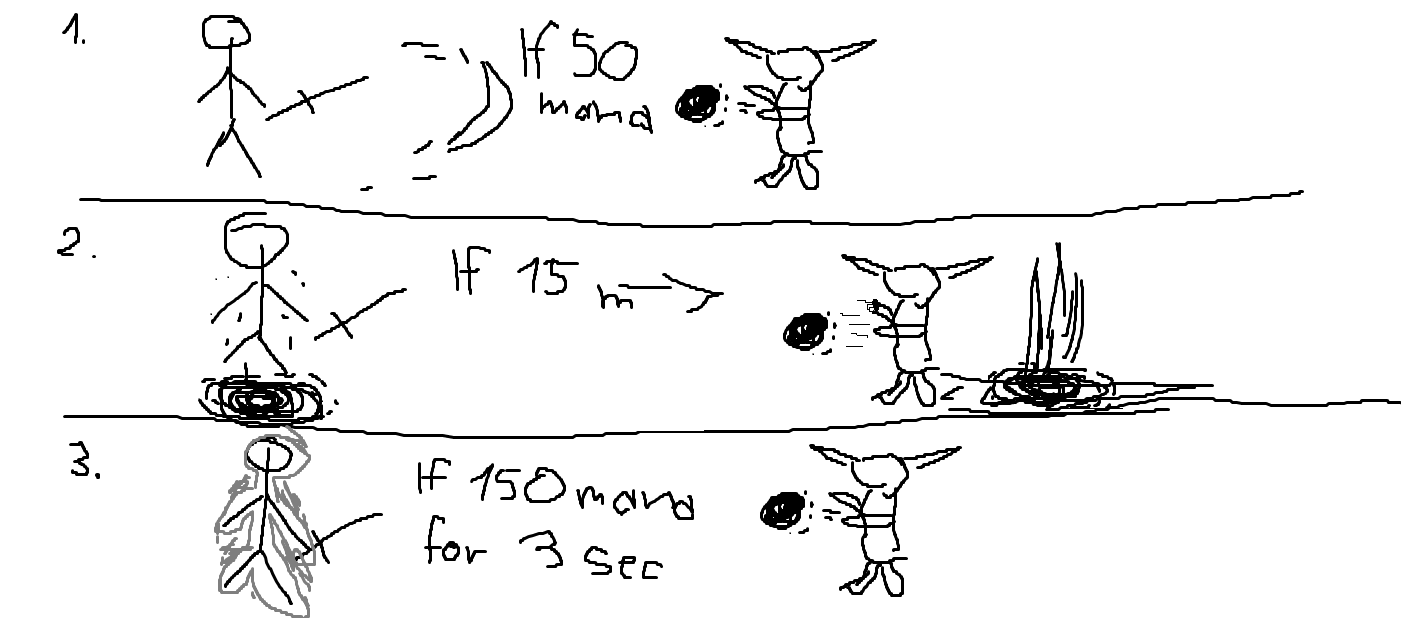 1.
If 50
mana
2.
If 15 m
3.
If 150 mana
for 3 sec